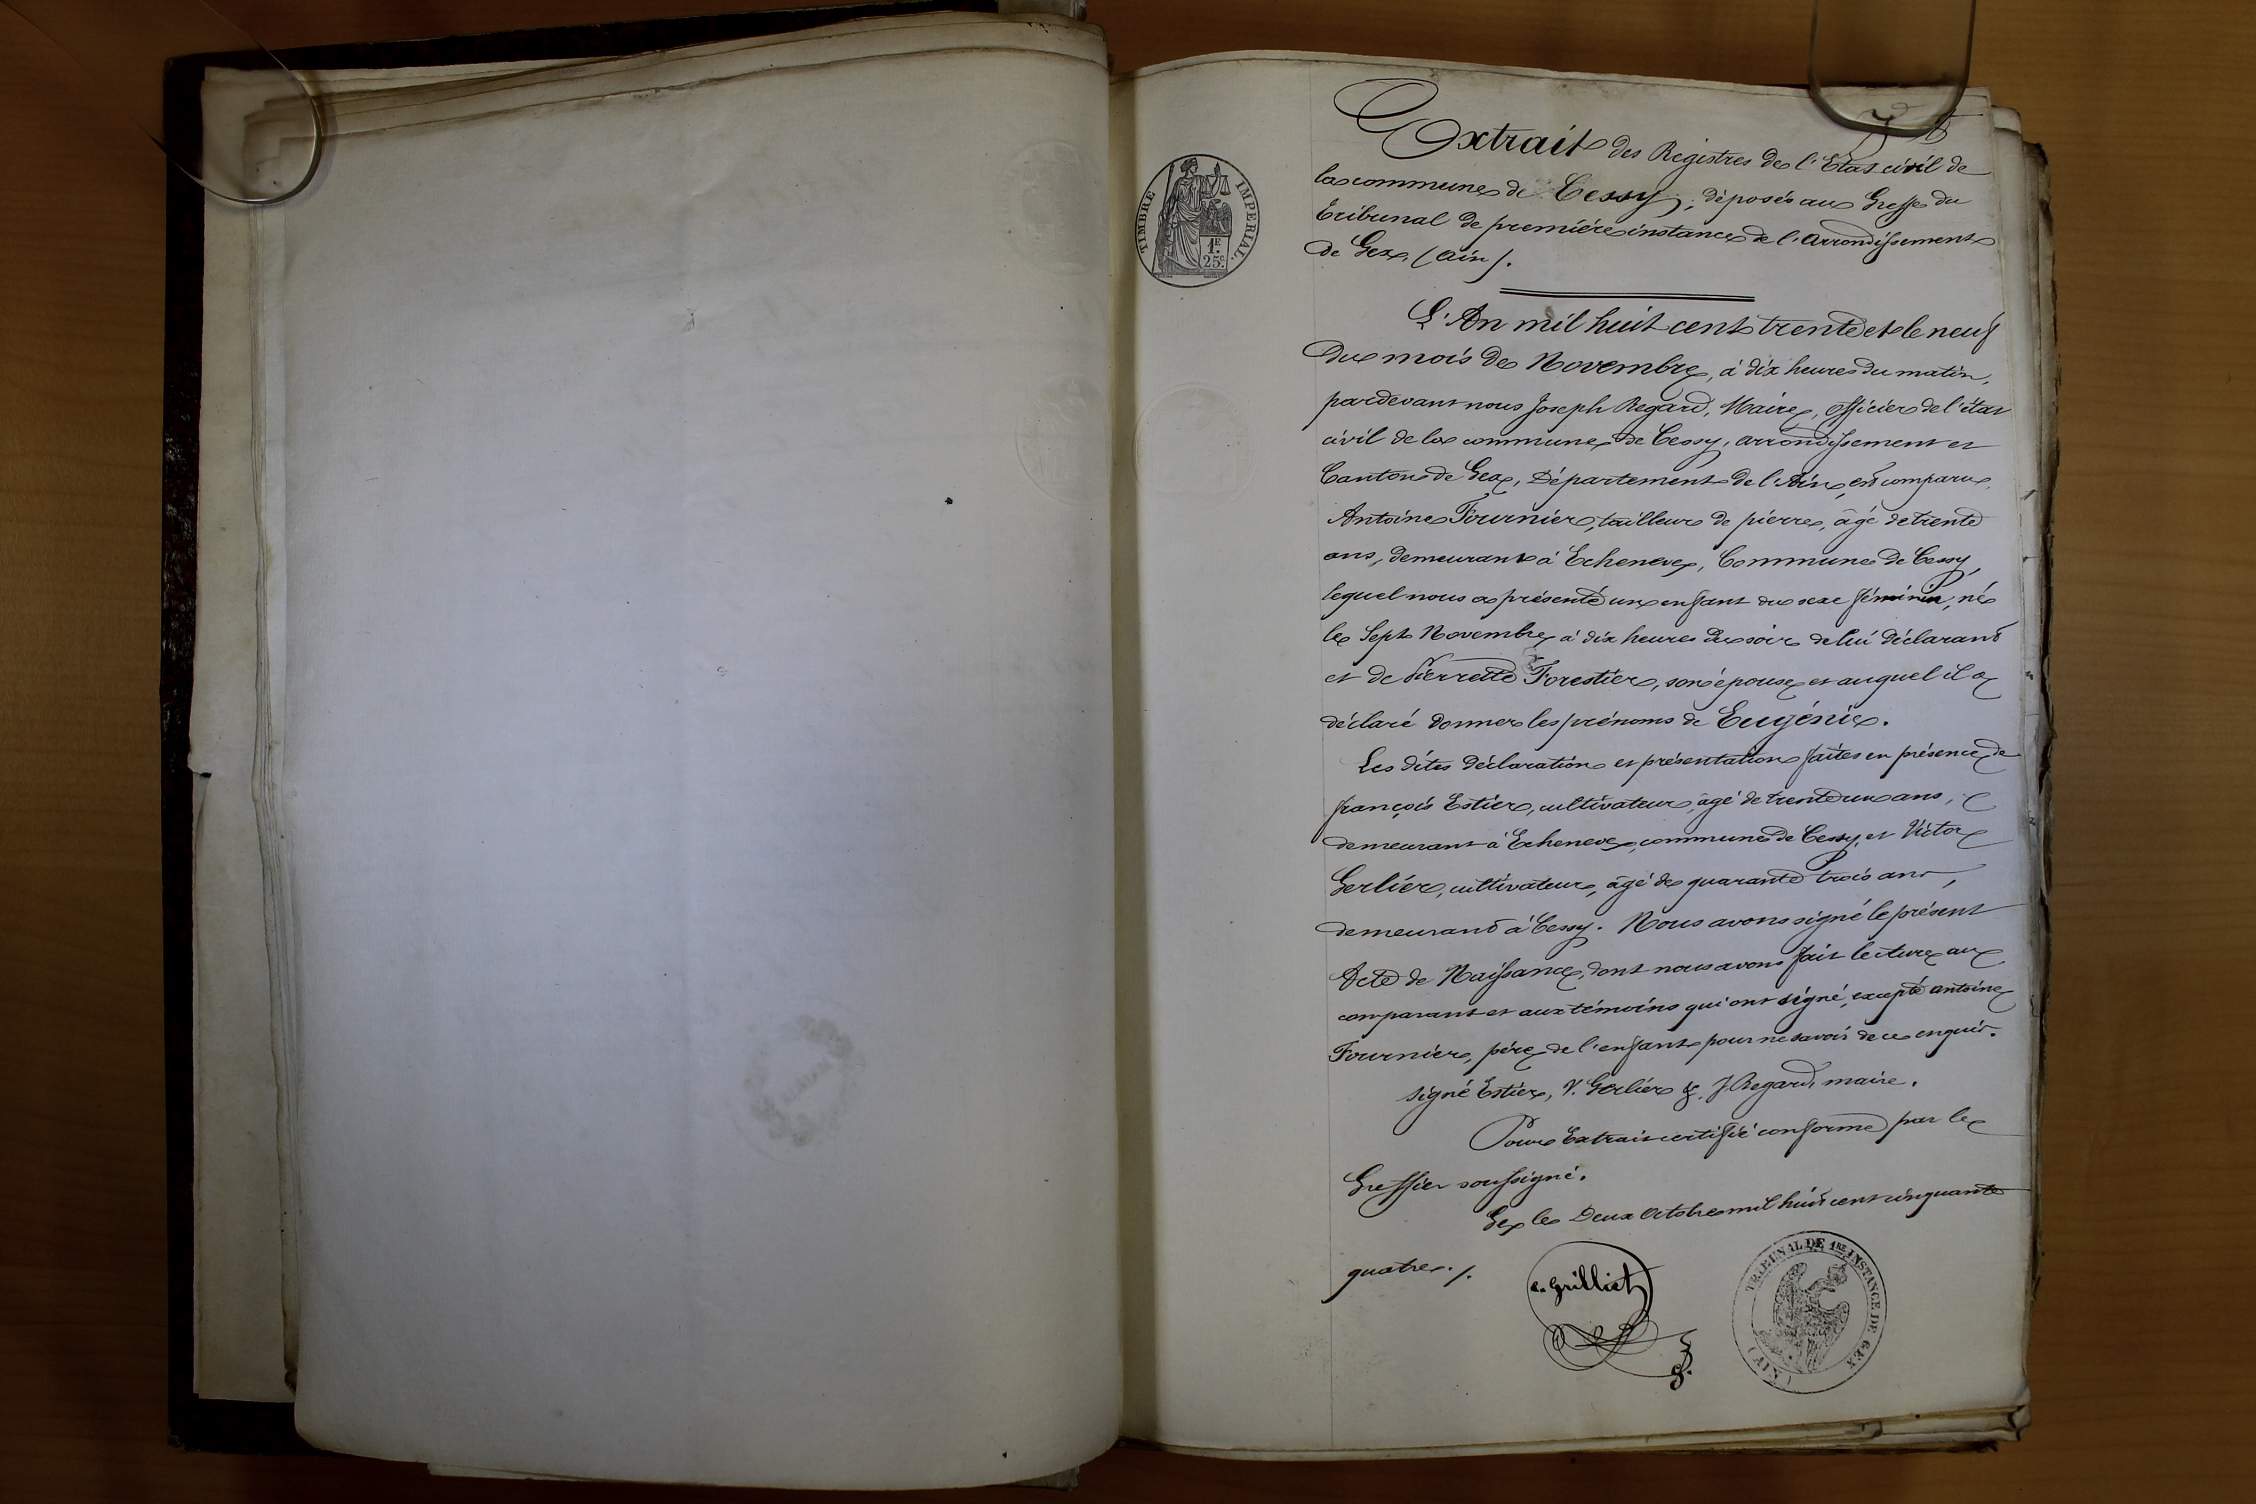 TIMBRE IMPERIAL.
1F.
25c.
Extrait des Registres de l'Etat civil de
la commune de Cessy, déposés au Greffe du
tribunal de première instance de l'arrondissement
de Gex, (Ain).
L'An mil huit cent trente et le neuf
du mois de Novembre, à dix heures du matin,
pardevant nous Joseph Regard, Maire, officier de l'état
civil de la commune de Cessy, arrondissement et
Canton de Gex, Département de l'Ain, est comparu
Antoine Fournier, tailleur de pierre, âgé de trente
ans, demeurant à Echenevex, Commune de Cessy,
lequel nous a présenté un enfant du sexe féminin, né
le Sept Novembre à dix heures du soir de lui déclarant
et de Pierrette Forestier, son épouse et auquel il a
déclaré donner les prénoms de Eugénie.
Les dites déclaration et présentation faites en présence de
françois Estier, cultivateur, âgé de trente un ans,
demeurant à Echenevex, commune de Cessy, et Victor
Gerlier, cultivateur, âgé de quarante trois ans,
demeurant à Cessy. Nous avons signé le présent
Acte de Naissance, dont nous avons fait lecture au
comparant et aux témoins qui ont signé, excepté antoine
Fournier, père de l'enfant pour ne savoir de ce enquis.
signé Estier, V. Gerlier & J. Regard, maire.
Pour Extrait certifié conforme par le
Greffier soussigné.
Gex le Deux Octobre mil huit cent cinquante
quatre ./.
Grilliet
TRIBUNAL DE 1RE INSTANCE DE GEX
(AIN)